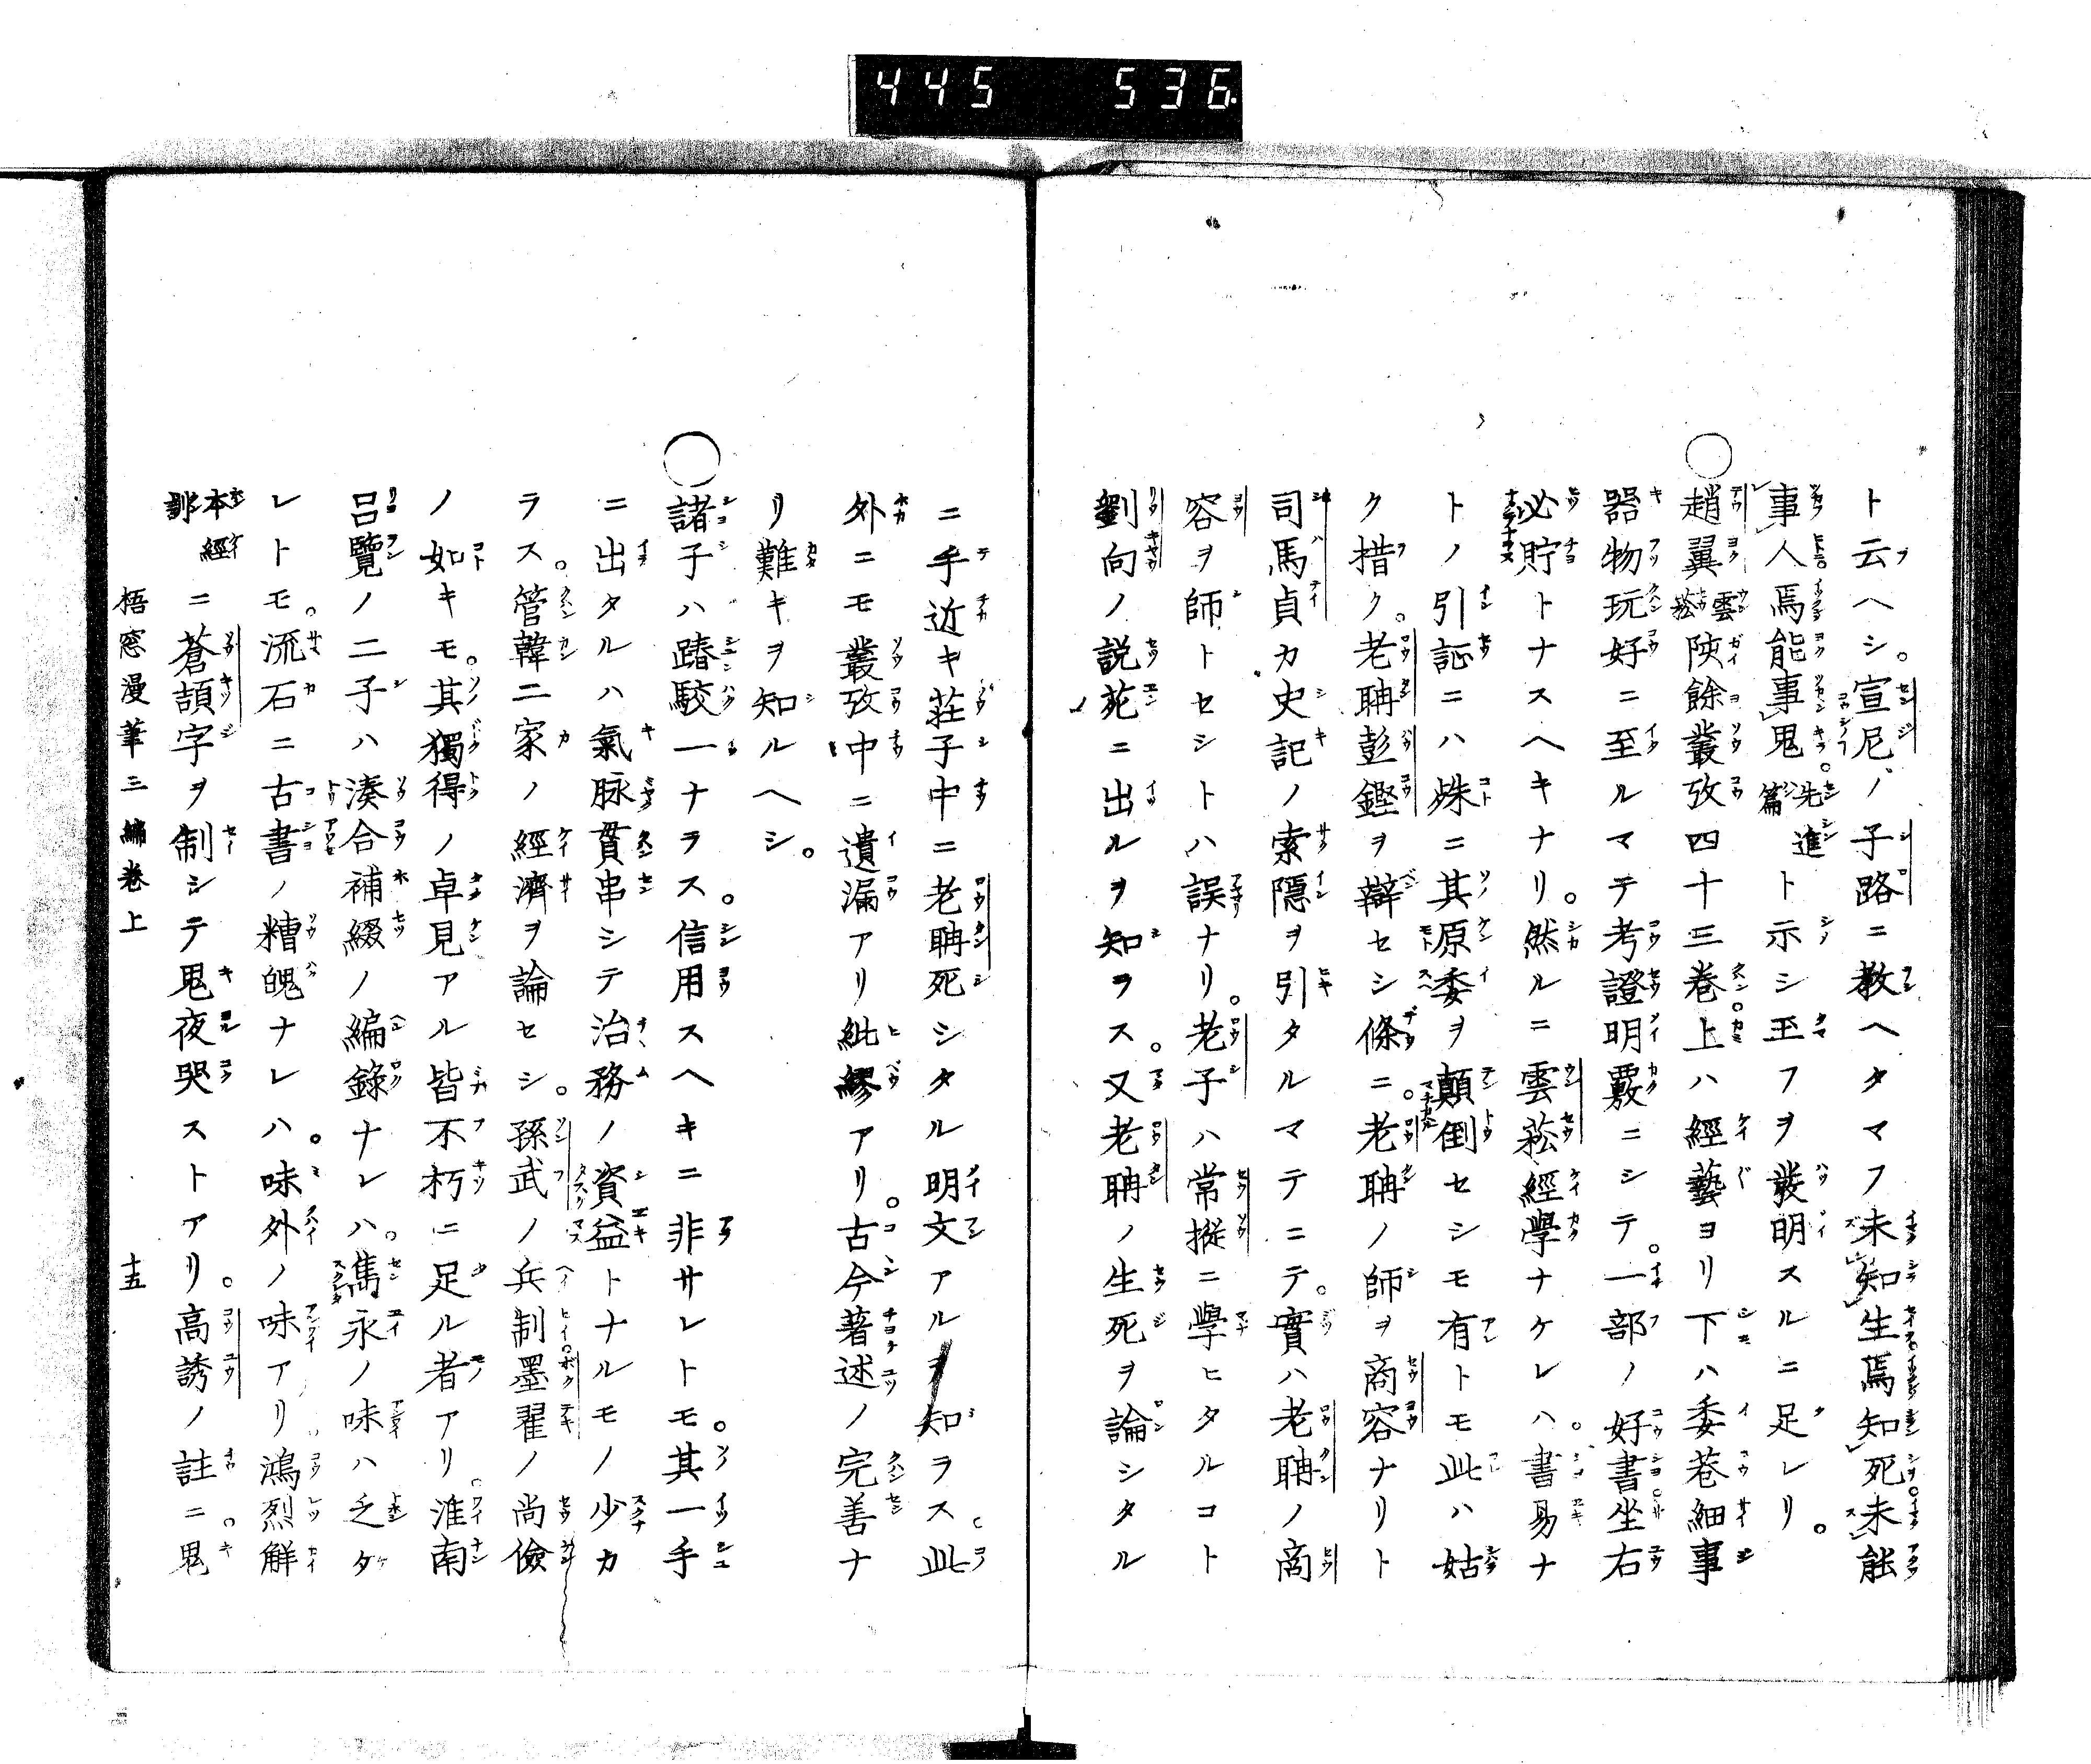 445 536
ト云ヘシ。宣尼ノ子路ニ教ヘタマフ未知生焉知死未能
事人焉能事鬼。先進篇ト示シ玉フヲ發明スルニ足レリ。
○趙翼雲菘陔餘叢攷四十三卷。上ハ經藝ヨリ下ハ委巷細事
器物玩好ニ至ルマテ考證明覈ニシテ。一部ノ好書坐右
必貯トナスヘキナリ。然ルニ雲菘經學ナケレハ。書易ナ
トノ引証ニハ殊ニ其原委ヲ顛倒セシモ有トモ此ハ姑
ク措ク。老聃彭鏗ヲ辯セシ條ニ。老聃ノ師ヲ商容ナリト
司馬貞カ史記ノ索隱ヲ引タルマテニテ。實ハ老聃ノ商
容ヲ師トセシトハ誤ナリ。老子ハ常摐ニ學ヒタルコト
劉向ノ説苑ニ出ルヲ知ラス。又老聃ノ生死ヲ論シタル
ニ手近キ莊子中ニ老聃死シタル明文アルヲ知ラス。此
外ニモ叢攷中ニ遺漏アリ紕繆アリ。古今著述ノ完善ナ
リ難キヲ知ルヘシ。
○諸子ハ踳駁一ナラス。信用スヘキニ非サレトモ。其一手
ニ出タルハ氣脉貫串シテ治務ノ資益トナルモノ少カ
ラス。管韓二家ノ經濟ヲ論セシ。孫武ノ兵制墨翟ノ尚儉
ノ如キモ。其獨得ノ卓見アル皆不朽ニ足ル者アリ。淮南
呂覽ノ二子ハ湊合補綴ノ編錄ナレハ。雋永ノ味ハ乏タ
レトモ。流石ニ古書ノ糟魄ナレハ。味外ノ味アリ鴻烈解
本經訓ニ蒼頡字ヲ制シテ鬼夜哭ストアリ。高誘ノ註ニ。鬼
梧窓漫筆三編卷上 十五